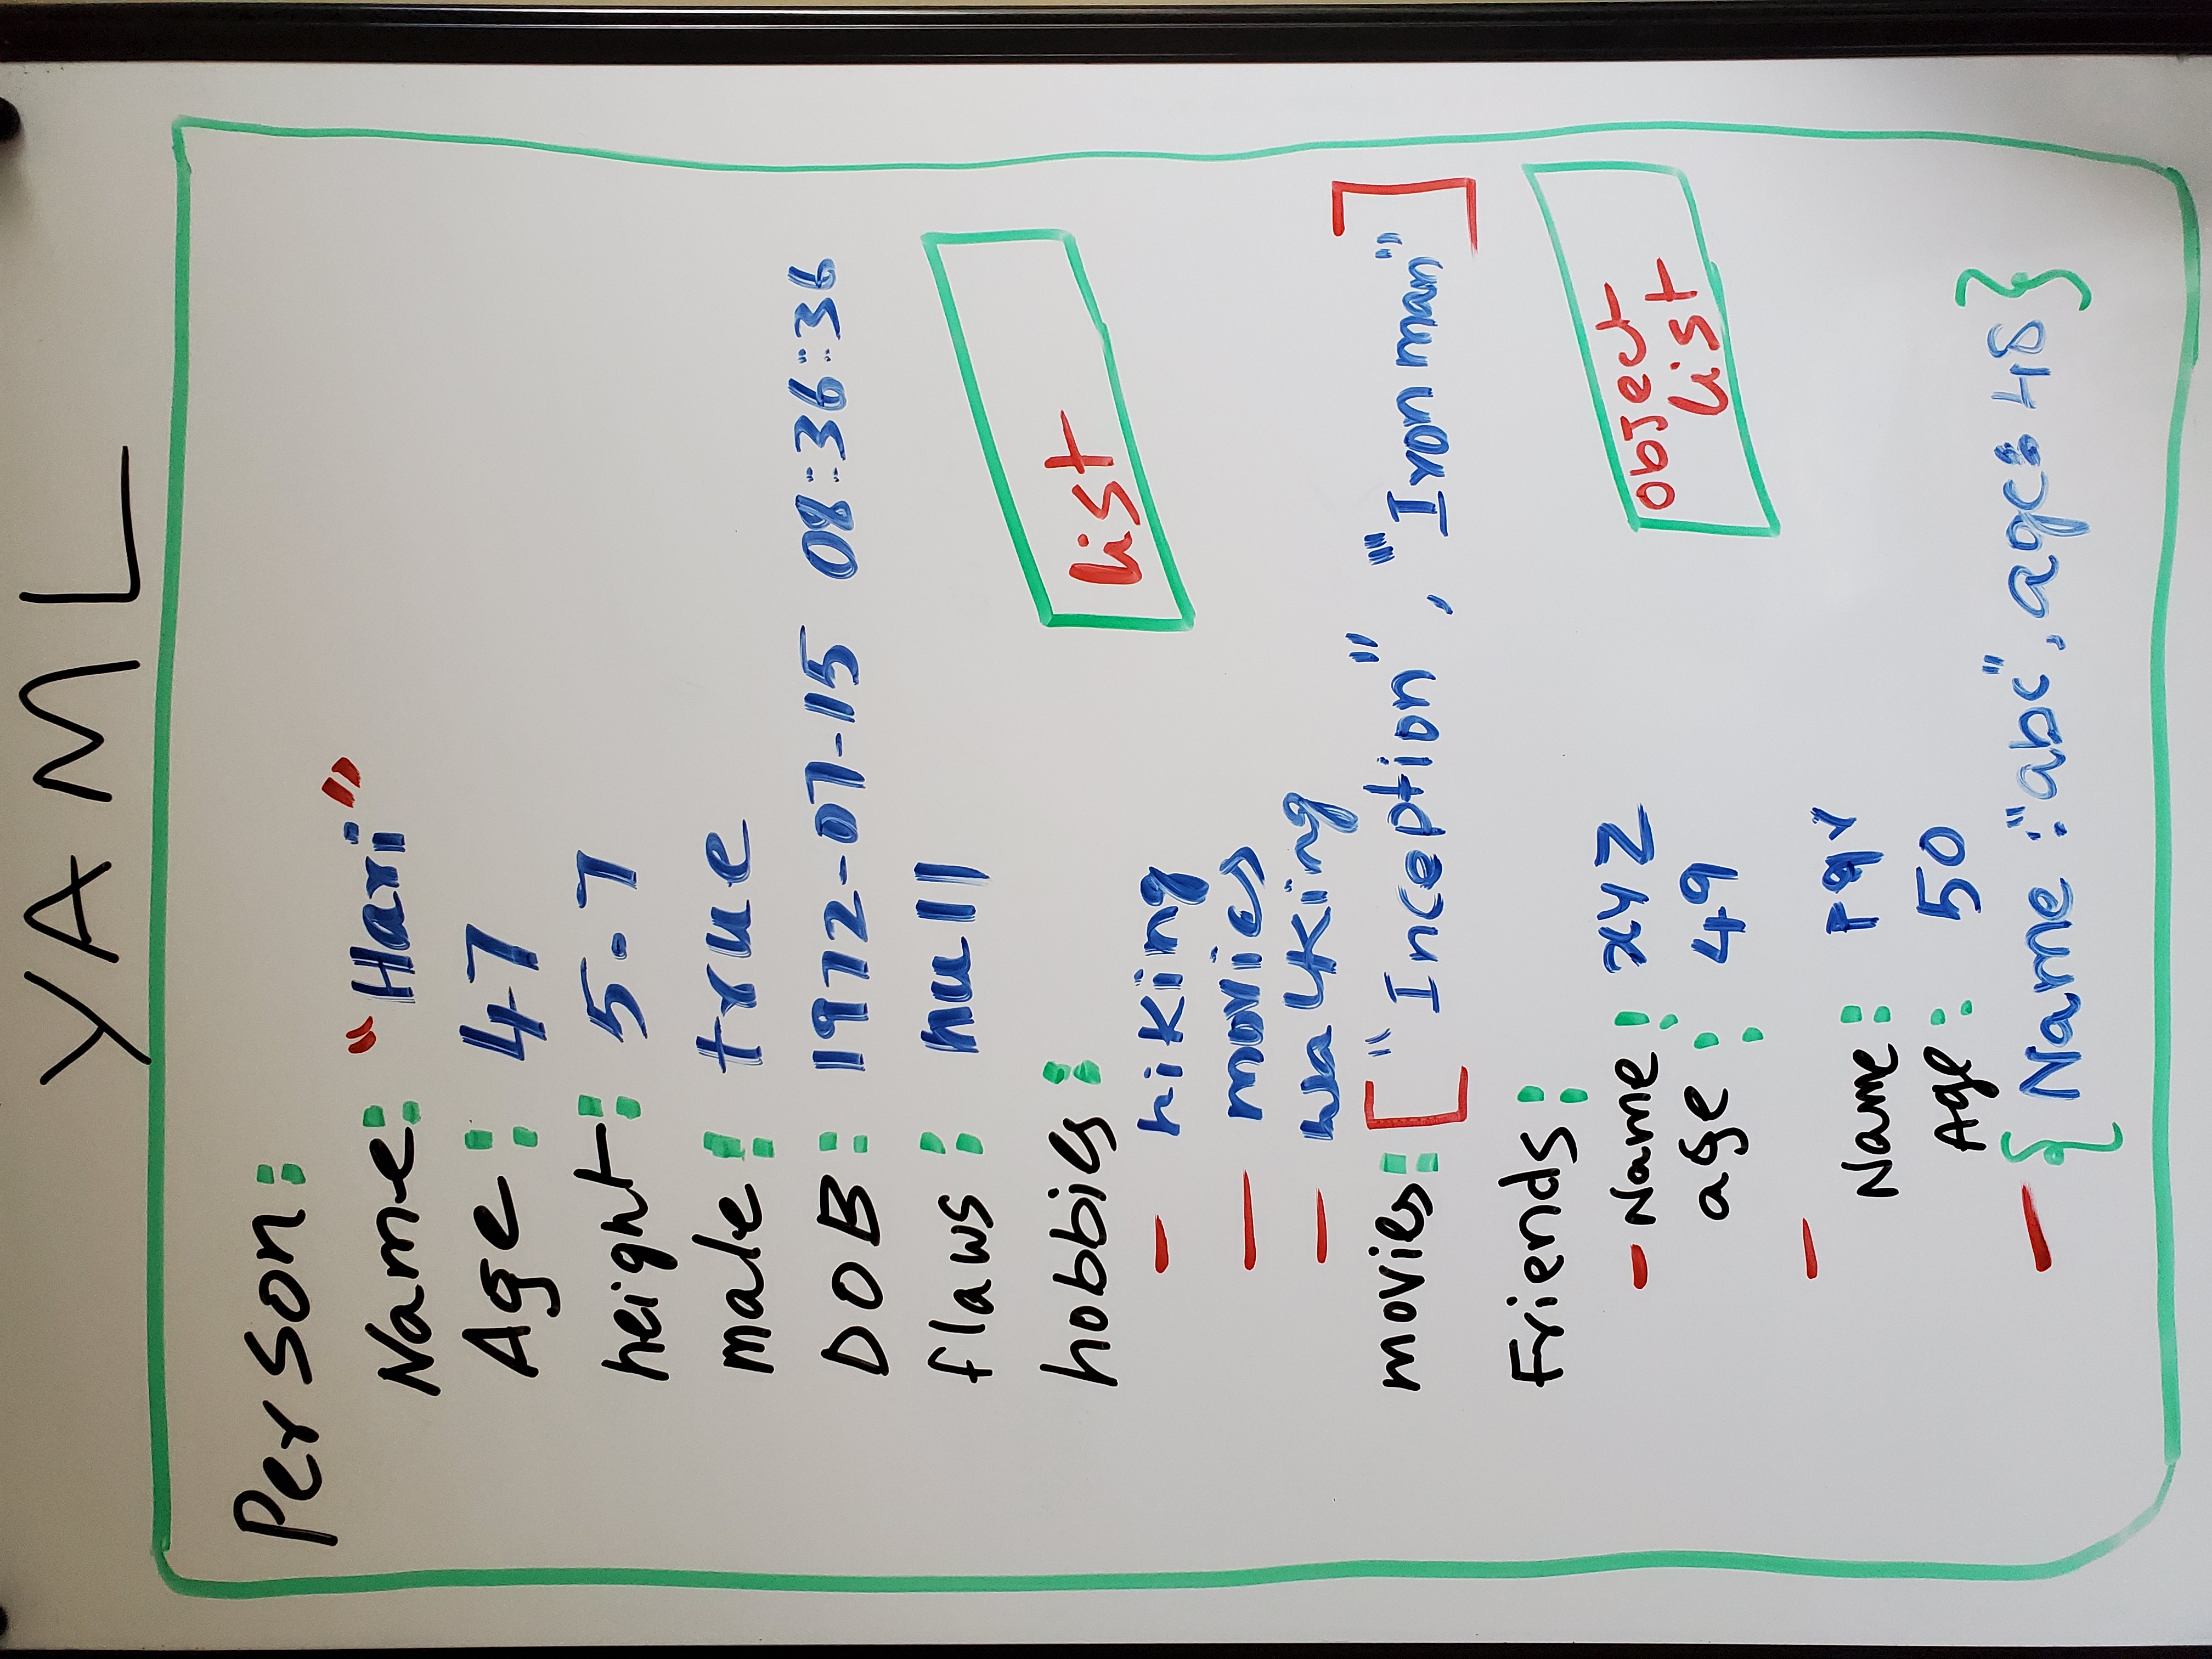 YAML
Person:
Name: "Hari"
Age: 47
height: 5.7
male: true
DOB: 1972-07-15 08:36:36
flaws: null
hobbies:
list
- hiking
- movies
- walking
movies: ["Inception", "Iron man"]
Friends:
- Name: xyz
age: 49
object
list
-
Name: pqr
Age: 50
- {Name :"abc", age: 48}